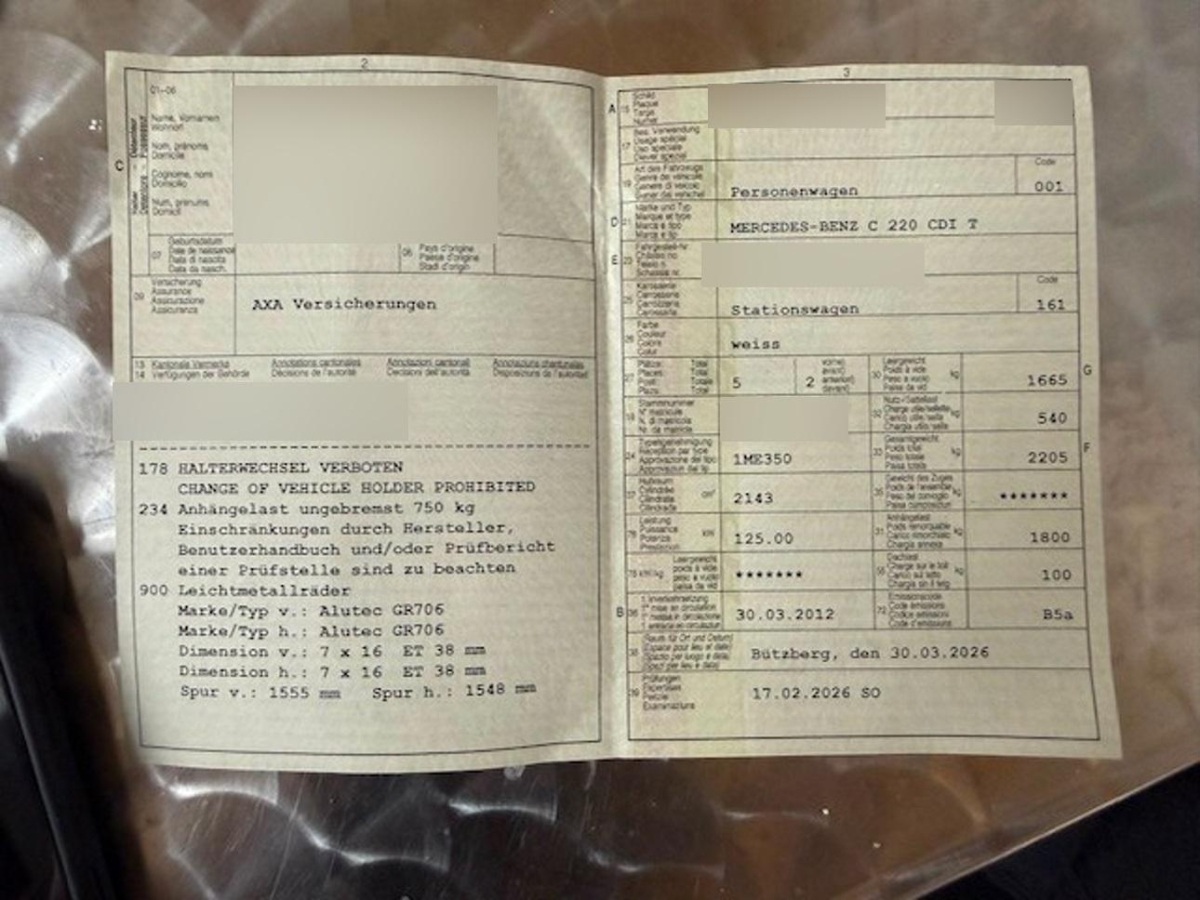 2
01-06
Name, Vornamen
Wohnort
Nom, prénoms
Domicile
Cognome, nomi
Domicilio
Num, prenums
Domicil
C
07
Geburtsdatum
Date de naissance
Data di nascita
Data da nasch.
Pays d'origine
Paese d'origine
Stadi d'origin
09
Versicherung
Assurance
Assicurazione
Assicuranza
AXA Versicherungen
13 Kantonale Vermerke Annotations cantonales Annotazioni cantonali Annotaziuns chantunalas
14 Verfügungen der Behörde Décisions de l'autorité Decisioni dell'autorità Disposiziuns da l'autoritad
178 HALTERWECHSEL VERBOTEN
CHANGE OF VEHICLE HOLDER PROHIBITED
234 Anhängelast ungebremst 750 kg
Einschränkungen durch Hersteller,
Benutzerhandbuch und/oder Prüfbericht
einer Prüfstelle sind zu beachten
900 Leichtmetallräder
Marke/Typ v.: Alutec GR706
Marke/Typ h.: Alutec GR706
Dimension v.: 7 x 16 ET 38 mm
Dimension h.: 7 x 16 ET 38 mm
Spur v.: 1555 mm Spur h.: 1548 mm
3
A 15
Schild
Plaque
Targa
Numer
17
Bes. Verwendung
Usage spécial
Uso speciale
Diever spezial
19
Art des Fahrzeugs
Genre de véhicule
Genere di veicolo
Gener dal vehichel
Personenwagen
Code
001
D 21
Marke und Typ
Marque et type
Marca e tipo
Marca e tip
MERCEDES-BENZ C 220 CDI T
E 23
Fahrgestell-Nr.
Châssis no
Telaio n.
Schassis nr.
25
Karosserie
Carrosserie
Carrozzeria
Carossaria
Stationswagen
Code
161
26
Farbe
Couleur
Colore
Colur
weiss
27
Plätze: Total
Places: Total
Posti: Totale
Plazs: Total
5
2
vorne)
avant)
anteriori)
davant)
30
Leergewicht
Poids à vide
Peso a vuoto
Paisa da vid
kg
1665
G
18
Stammnummer
N° matricule
N. di matricola
Nr. da matricla
32
Nutz-/Sattellast
Charge utile/sellette
Carico utile/sella
Chargia utila/sella
kg
540
24
Typengenehmigung
Réception par type
Approvazione del tipo
Approvaziun dal tip
1ME350
33
Gesamtgewicht
Poids total
Peso totale
Paisa totala
kg
2205
F
37
Hubraum
Cylindrée
Cilindrata
Cilindrada
cm³
2143
35
Gewicht des Zuges
Poids de l'ensemble
Peso del convoglio
Paisa cumposiziun
kg
*******
76
Leistung
Puissance
Potenza
Prestaziun
kW
125.00
31
Anhängelast
Poids remorquable
Carico rimorchiato
Chargia annexa
kg
1800
78 kW/kg
Leergewicht
poids à vide
peso a vuoto
paisa da vid
*******
55
Dachlast
Charge sur le toit
Carico sul tetto
Chargia sin il tetg
kg
100
B 36
1. Inverkehrsetzung
1re mise en circulation
1a messa in circolazione
1. entrada en circulaziun
30.03.2012
72
Emissionscode
Code émissions
Codice emissioni
Code d'emissiuns
B5a
38
(Raum für Ort und Datum)
(Espace pour lieu et date)
(Spazio per luogo e data)
(Spazi per lieu e data)
Bützberg, den 30.03.2026
39
Prüfungen
Expertises
Perizie
Examinaziuns
17.02.2026 SO